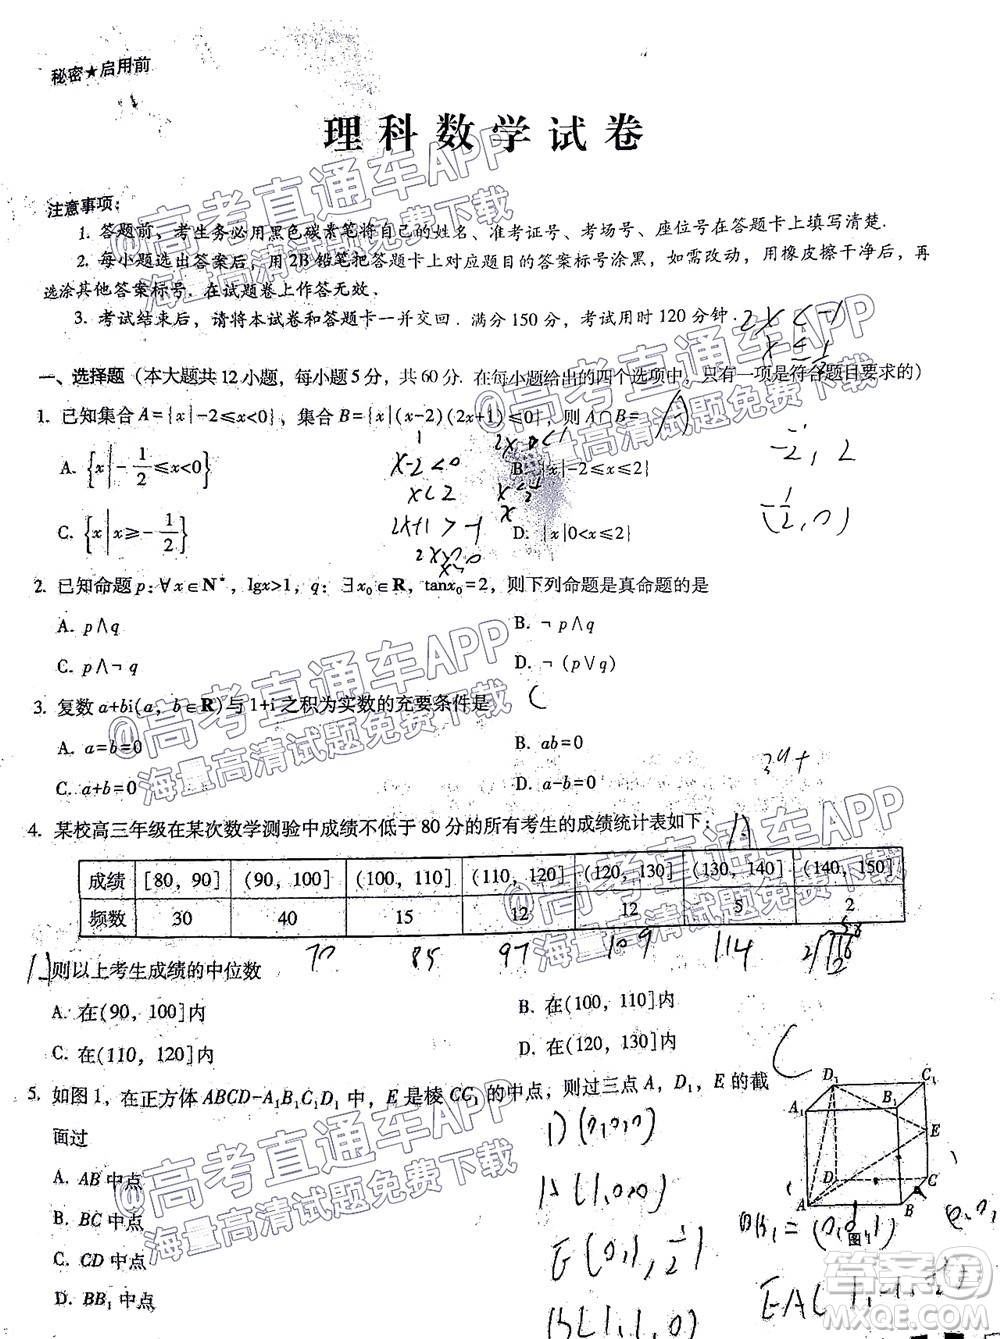 秘密★启用前
理科数学试卷
注意事项：
1. 答题前，考生务必用黑色碳素笔将自己的姓名、准考证号、考场号、座位号在答题卡上填写清楚.
2. 每小题选出答案后，用2B铅笔把答题卡上对应题目的答案标号涂黑，如需改动，用橡皮擦干净后，再
选涂其他答案标号. 在试题卷上作答无效.
3. 考试结束后，请将本试卷和答题卡一并交回. 满分150分，考试用时120分钟.
2x<-1
x≤-1/2
一、选择题（本大题共12小题，每小题5分，共60分. 在每小题给出的四个选项中，只有一项是符合题目要求的）
1. 已知集合A={x|-2≤x<0}，集合B={x|(x-2)(2x+1)≤0}，则A∩B=
A. {x|-1/2≤x<0}
B. {x|-2≤x≤2}
C. {x|x≥-1/2}
D. {x|0<x≤2}
x-2<0
x<2
2x+1>-1
-1/2, 2
(-1/2, 0)
2. 已知命题p：∀x∈N*，lgx>1，q：∃x₀∈R，tanx₀=2，则下列命题是真命题的是
A. p∧q
B. ¬p∧q
C. p∧¬q
D. ¬(p∨q)
3. 复数a+bi(a，b∈R)与1+i之积为实数的充要条件是
A. a=b=0
B. ab=0
C. a+b=0
D. a-b=0
4. 某校高三年级在某次数学测验中成绩不低于80分的所有考生的成绩统计表如下：
成绩 [80，90] (90，100] (100，110] (110，120] (120，130] (130，140] (140，150]
频数 30 40 15 12 12 5 2
70 85 97 109 114
则以上考生成绩的中位数
A. 在(90，100]内
B. 在(100，110]内
C. 在(110，120]内
D. 在(120，130]内
5. 如图1，在正方体ABCD-A₁B₁C₁D₁中，E是棱CC₁的中点，则过三点A，D₁，E的截
面过
A. AB中点
B. BC中点
C. CD中点
D. BB₁中点
D(0,0,0)
A(1,0,0)
E(0,1,1/2)
B(1,1,0)
D₁ C₁
A₁ B₁
E
D C
A B
图1
@高考直通车APP
海量高清试题免费下载
@高考直通车APP
海量高清试题免费下载
@高考直通车APP
海量高清试题免费下载
@高考直通车APP
海量高清试题免费下载
@高考直通车APP
海量高清试题免费下载
答案圈
MXQE.COM